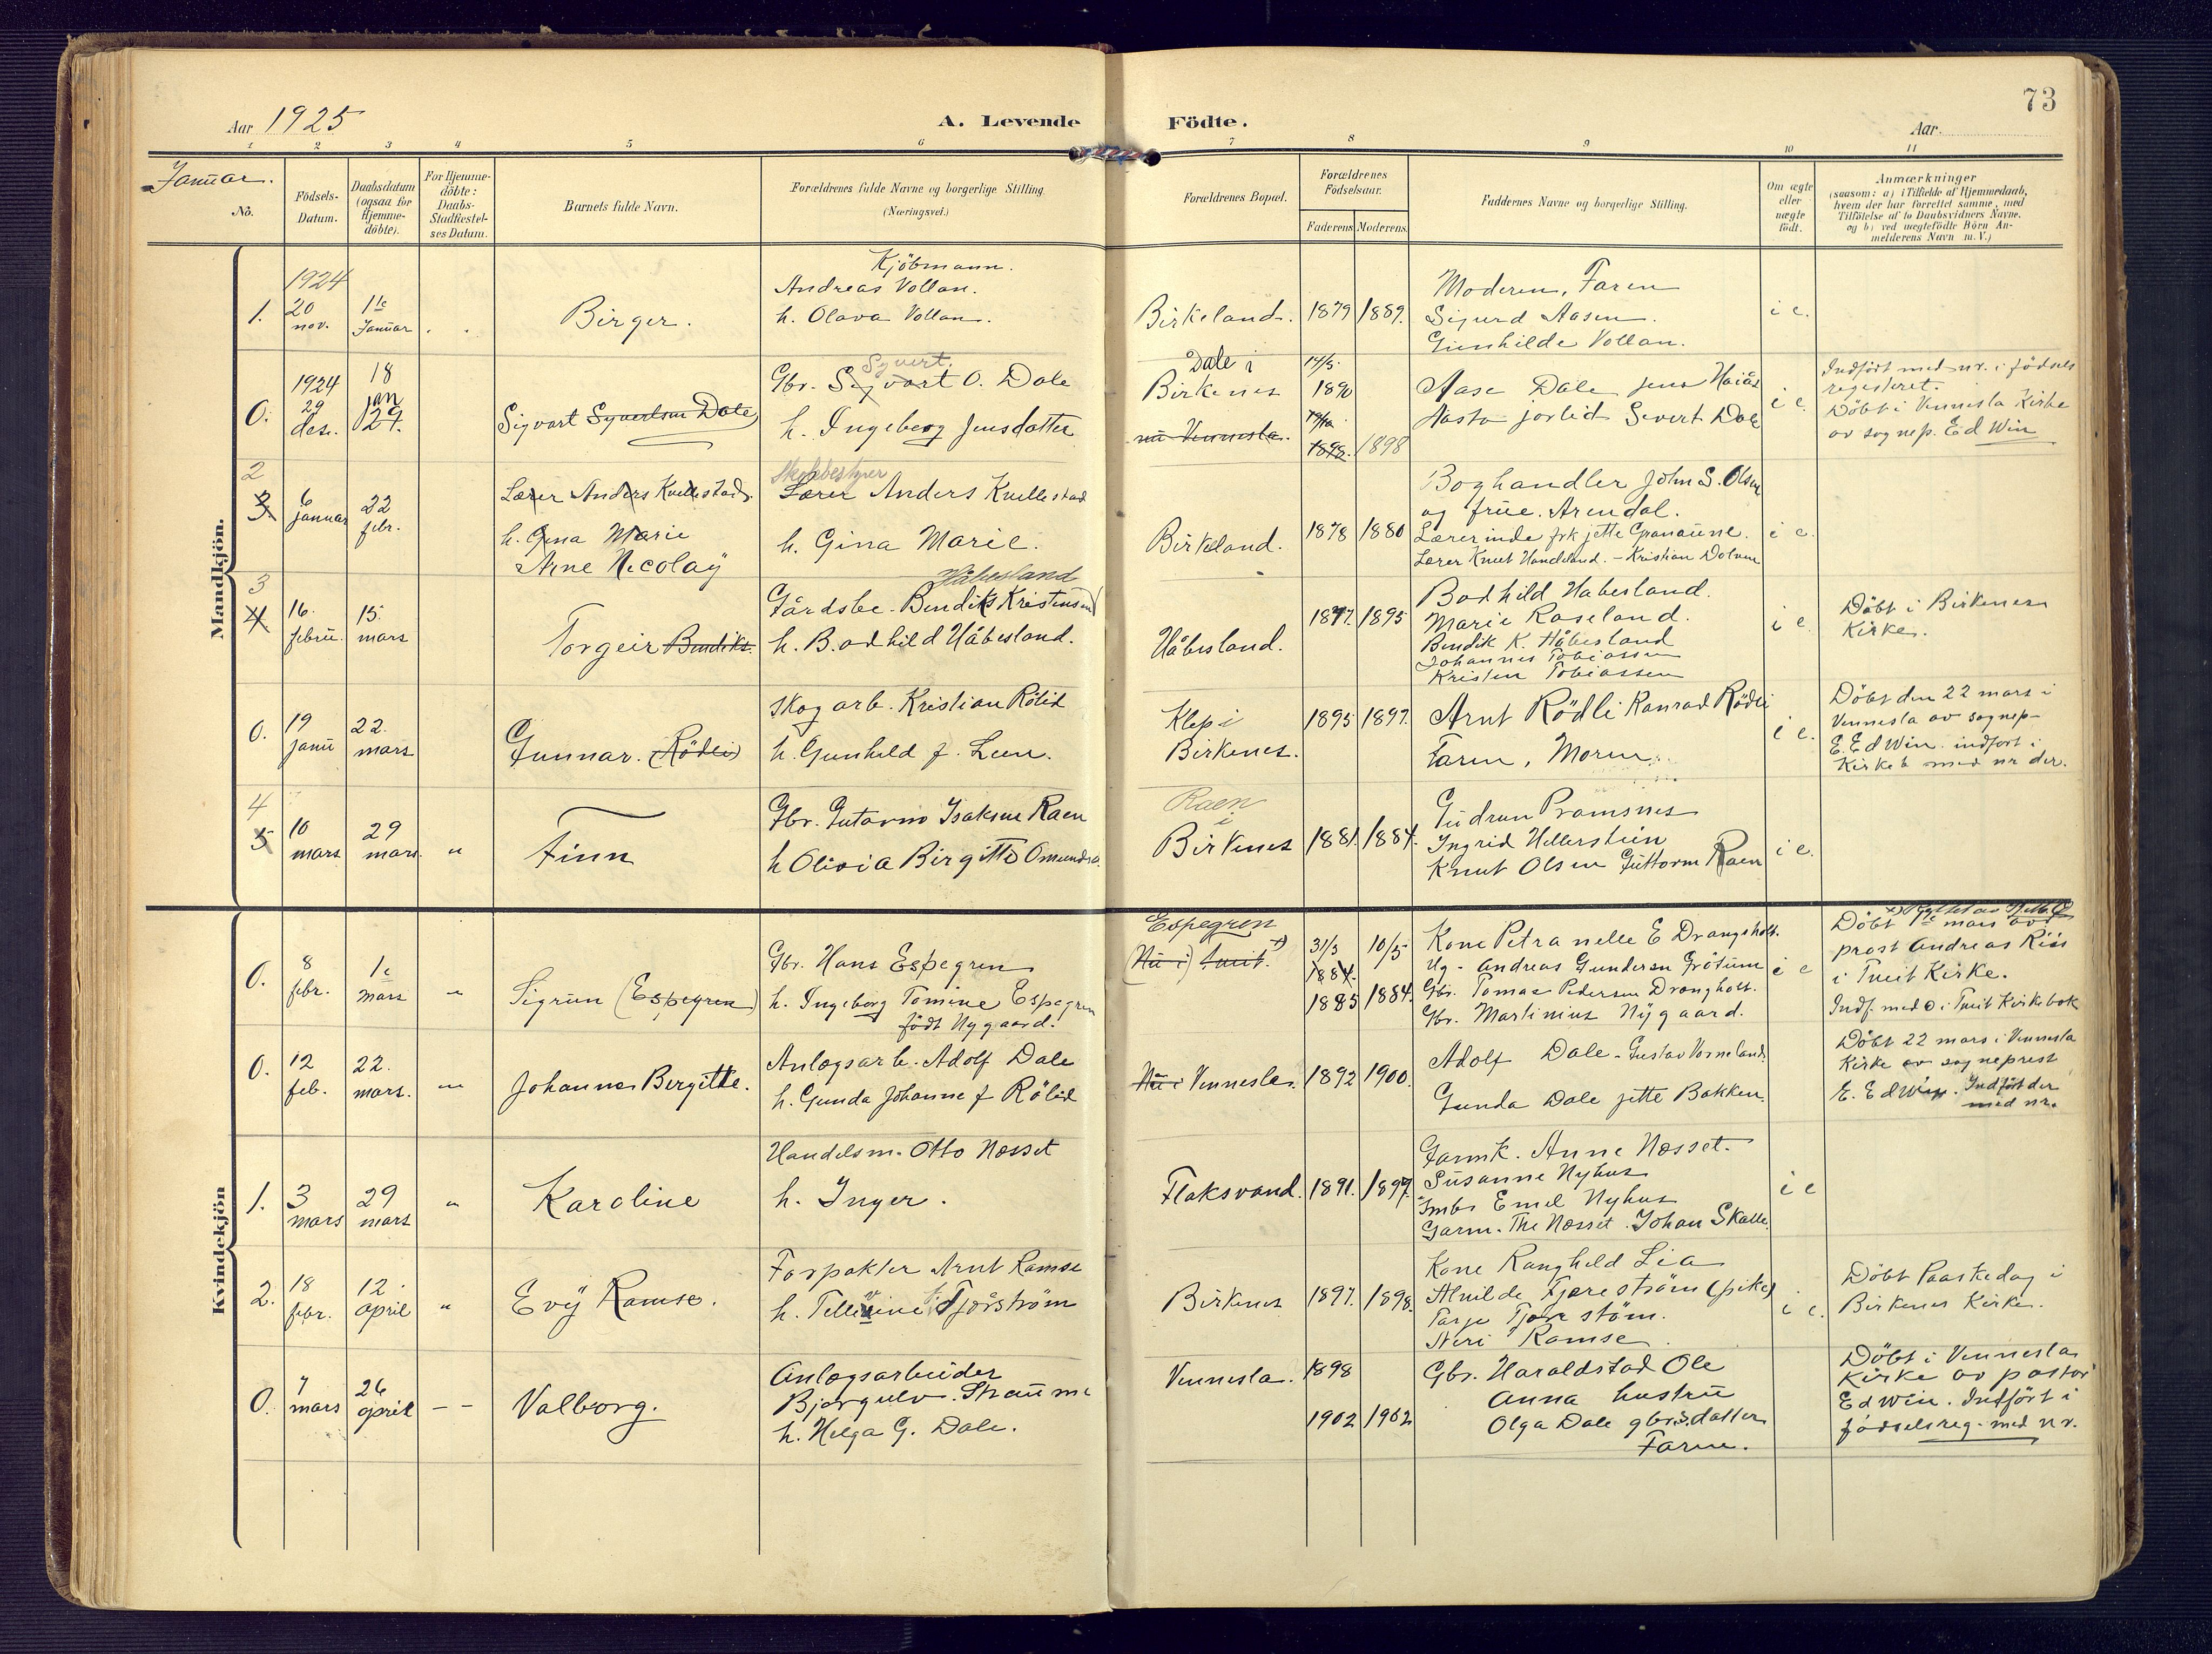 73
Aar 1925
A. Levende Födte.
Aar
1 2 3 4 5 6 7 8 9 10 11
Januar.
No.
Födsels-Datum.
Daabsdatum (ogsaa for Hjemmedöbte).
For Hjemmedöbte: Daabs-Stadfæstelses Datum.
Barnets fulde Navn.
Forældrenes fulde Navne og borgerlige Stilling. (Næringsvei.)
Forældrenes Bopæl.
Forældrenes Födselsaar.
Faderens Moderens.
Faddernes Navne og borgerlige Stilling.
Om ægte eller uægte födt.
Anmærkninger
(saasom: a) i Tilfælde af Hjemmedaab, hvem der har forrettet samme, med Tilföielse af to Daabsvidners Navne, og b) ved uægtefödte Börn Anmelderens Navn m. V.)
Mandkjön.
1.
1924
20 nov.
1te Januar
Birger.
Kjöbmann.
Andreas Vollan.
h. Olava Vollan.
Birkeland.
1879 1889.
Moderen, Faren
Sigurd Aasen.
Gunhilde Vollan.
i e.
0.
1924
29 des.
18 jan
Sigvart Syvertsen Dale
Syvert.
Gbr. Sigvart O. Dale
h. Ingeberg Jensdatter
Dale i
Birkenes
nu Vennesla.
14/5.
1890
1898. 1898
Aase Dale Jens
Aasta Jorlid Severt Dale
i e.
Indfört med nr. i födsels
registeret.
Döbt i Vennesla Kirke
av sognep. Edwin
2
3.
6 januar
22 febr.
Lærer Anders Kvellestad.
h. Gina Marie
Arne Nicolaÿ
Skolebestyrer
Lærer Anders Kvellestad
h. Gina Marie.
Birkeland.
1878 1880
Boghandler John S. Olsen
og frue. Arendal.
Lærerinde frk jette Granaune.
Lærer Knut Handeland. - Kristian Dolven
i e.
3
4
16. febru.
15. mars
Torgeir Bendiks.
Håbesland
Gårdsbr. Bendiks Kristensen
h. Bodhild Håbesland.
Håbesland.
1897. 1895
Bodhild Håbesland.
Marie Roseland.
Bendik K. Håbesland
Johannes Tobiassen
Kristen Tobiassen
i e.
Döbt i Birkenes
Kirke.
0.
19 janu
22. mars
Gunnar. (Rödli)
Skogarb. Kristian Rölid
h. Gunhild f. Leen.
Klep i
Birkenes.
1895 1897.
Arnt Rödli Konrad Rödli
Faren, Moren.
i e.
Döbt den 22 mars i
Vennesla av sognep-
E. Edwin. indfört i
Kirkeb med nr der.
4
5
10 mars
29 mars.
"
Finn
Gbr. Gutorm Isaksen Raen
h Olivia Birgitte Omundsd.
Raen
i
Birkenes
1881. 1884.
Gudrun Pramsnes
Ingrid Hellerstein
Knut Olsen Guttorm Raen
i e.
Kvindekjön
0.
8 febr.
1e mars
"
Sigrun (Espegren)
Gbr. Hans Espegren
h. Ingeborg Tomine Espegren
født Nygaard.
Espegren
(Nu i) Tveit.
31/3 10/5
1884.
1885 1884.
Kone Petra nelle E Drangsholt.
Ug - Andreas Gundersen Grötum
Gbr. Tomas Pedersen Drangholt.
Gbr. Martinius Nÿgaard.
i e
Döbt 1e mars av
prost Andreas Riis
i Tveit Kirke.
Indf. med 0 i Tveit Kirkebok
0.
12 feb.
22. mars.
"
Johanne Bergitte.
Anlægsarb. Adolf Dale
h. Gunda Johanne f Rölid
Nu i Vennesla.
1892 1900.
Adolf Dale - Gustav Vonneland
Gunda Dale jette Bakken.
Döbt 22 mars i Vennesla
Kirke av sogneprest
E. Edwin. Indfört der
med nr.
1.
3 mars
29 mars
"
Karoline
Handelsm. Otto Næsset
h. Inger.
Flaksvand.
1891. 1897.
Garmk. Anne Næsset.
Susanne Nyhus
Smbr Emil Nyhus
Garm. The Næsset. Johan Skalle.
i e
2.
18 febr.
12. april
"
Evÿ Ramse.
Forpakter Arnt Ramse
h. Telline Tjörström
Birkenes
1897. 1898.
Kone Ranghild Lia
Alvilde Fjæreström (pike)
Tarje Tjorestöm.
Neri Ramse.
i e.
Döbt Paaskedag i
Birkenes Kirke.
0.
7 mars
26 april
- -
Valborg.
Anlægsarbeider
Bjørgulv. Straume
h. Helga G. Dale.
Vennesla.
1898
1902 1902
Gbr. Haraldstad Ole
Anna hustru
Olga Dale gbrsdatter
Faren.
Döbt i Vennesla
Kirke av pastor
Edwin. Indfört i
födselsreg. med nr.